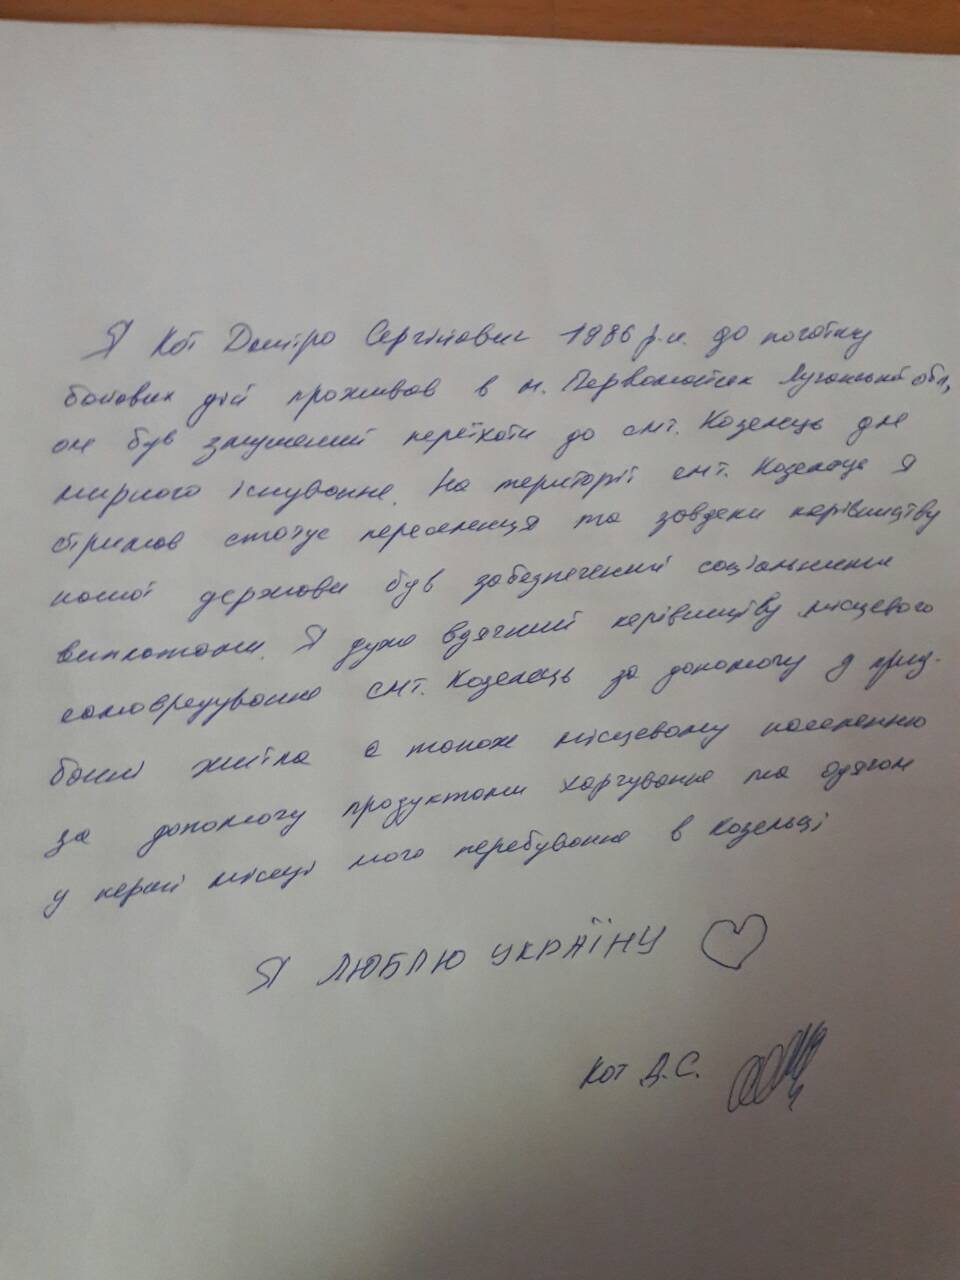 Я Кот Дмітро Сергійович 1986 р.н. до початку
бойових дій проживав в м. Первомайск Луганській обл,
ом був змушений переїхати до смт. Козелець для
мирного існування. На території смт. Козелець я
отримав статус переселенця та завдяки керівництву
нашої держави був забезпечений соціальними
виплатами. Я дуже вдячний керівництву місцевого
самоврядування смт. Козелець за допомогу у прид-
банні житла а також місцевому населенню
за допомогу продуктами харчування та одягом
у перші місяці мого перебування в Козельці
Я ЛЮБЛЮ УКРАЇНУ
Кот Д.С.